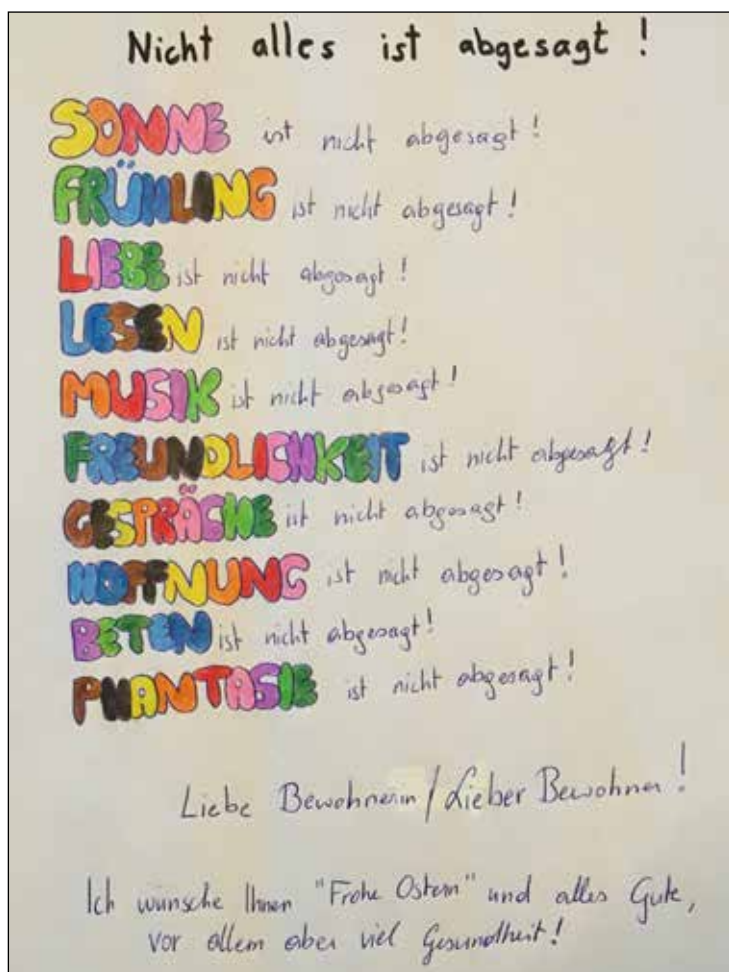 Nicht alles ist abgesagt!
SONNE ist nicht abgesagt!
FRÜHLING ist nicht abgesagt!
LIEBE ist nicht abgesagt!
LESEN ist nicht abgesagt!
MUSIK ist nicht abgesagt!
FREUNDLICHKEIT ist nicht abgesagt!
GESPRÄCHE ist nicht abgesagt!
HOFFNUNG ist nicht abgesagt!
BETEN ist nicht abgesagt!
PHANTASIE ist nicht abgesagt!
Liebe Bewohnerin/Lieber Bewohner!
Ich wünsche Ihnen "Frohe Ostern" und alles Gute,
vor allem aber viel Gesundheit!